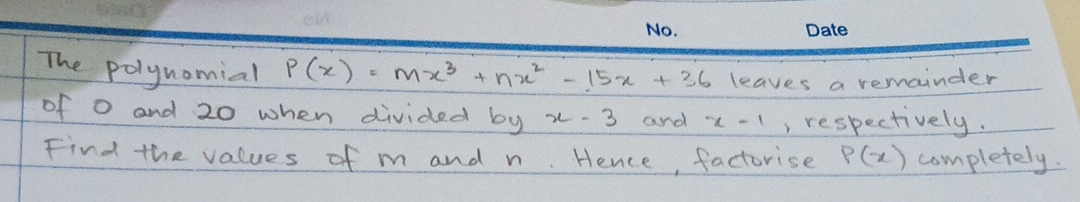 No. Date
The polynomial P(x) = mx³ + nx² - 15x + 36 leaves a remainder
of 0 and 20 when divided by x - 3 and x - 1, respectively.
Find the values of m and n. Hence, factorise P(x) completely.